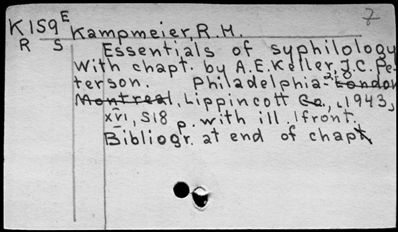 7
K159E Kampmeier, R. H.
R S Essentials of syphilology
With chapt. by A. E. Keller, J. C. Pe-
terson. Philadelphia- London
Montreal, Lippincott Co., 1943,
xvi, 518 p. with ill. 1 front.
Bibliogr. at end of chapt.